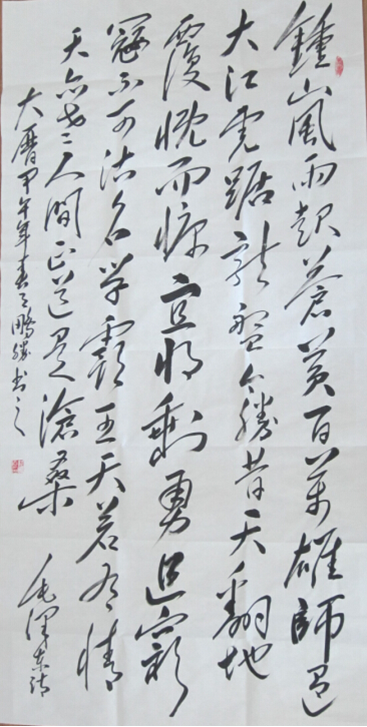 鍾山風雨起蒼黃百萬雄師過
大江虎踞龍盤今勝昔天翻地
覆慨而慷宜將剩勇追窮
寇不可沽名學霸王天若有情
天亦老人間正道是滄桑 毛澤東詩
大曆甲午年春之鵬勝書之